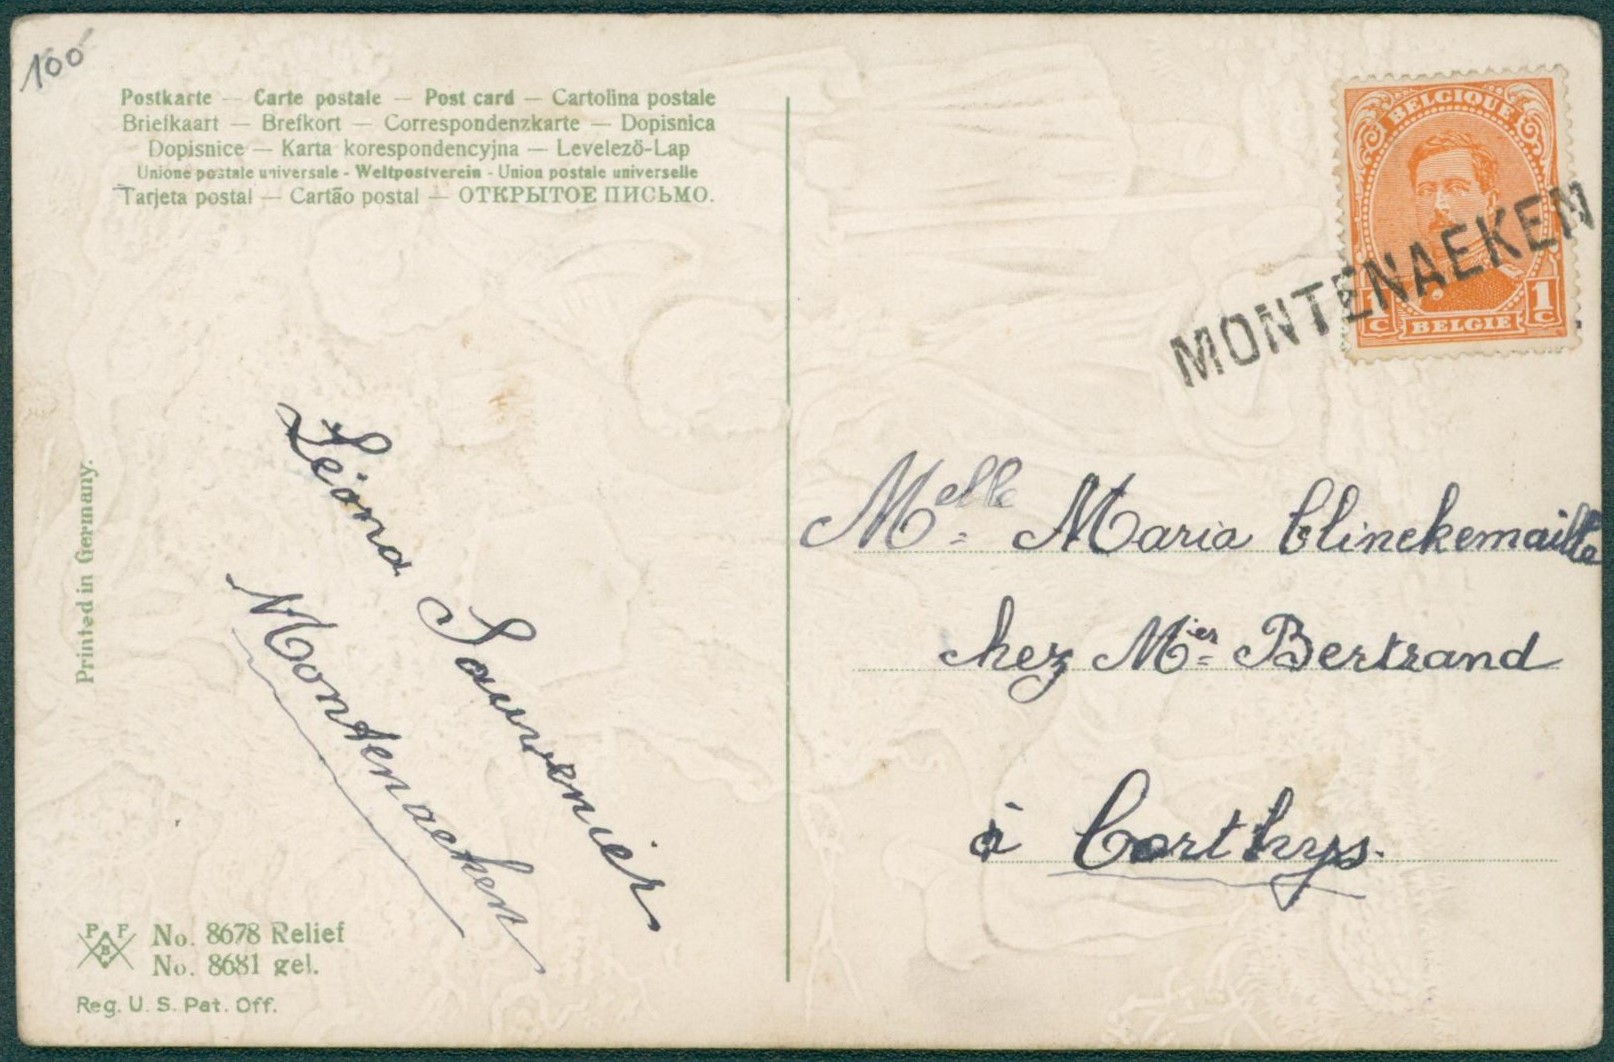 100
Postkarte — Carte postale — Post card — Cartolina postale
Briefkaart — Brefkort — Correspondenzkarte — Dopisnica
Dopisnice — Karta korespondencyjna — Levelezö-Lap
Unione postale universale - Weltpostverein - Union postale universelle
Tarjeta postal — Cartão postal — ОТКРЫТОЕ ПИСЬМО.
BELGIQUE
1c 1c
BELGIE
MONTENAEKEN
Printed in Germany.
Léona Sauvenier
Montenaeken
Melle Maria Clinckemaille
chez Mier Bertrand
à Corthys.
P F
B
No. 8678 Relief
No. 8681 gel.
Reg. U. S. Pat. Off.